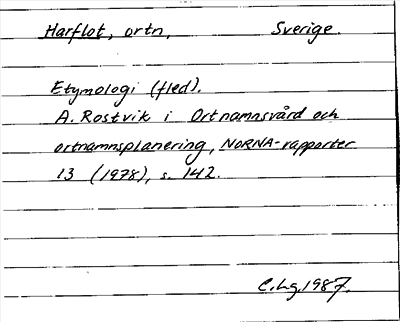 Harflot, ortn. Sverige.
Etymologi (fled).
A. Rostvik i Ortnamnsvård och
ortnamnsplanering, NORNA-rapporter
13 (1978), s. 142.
C.Lg. 1987.